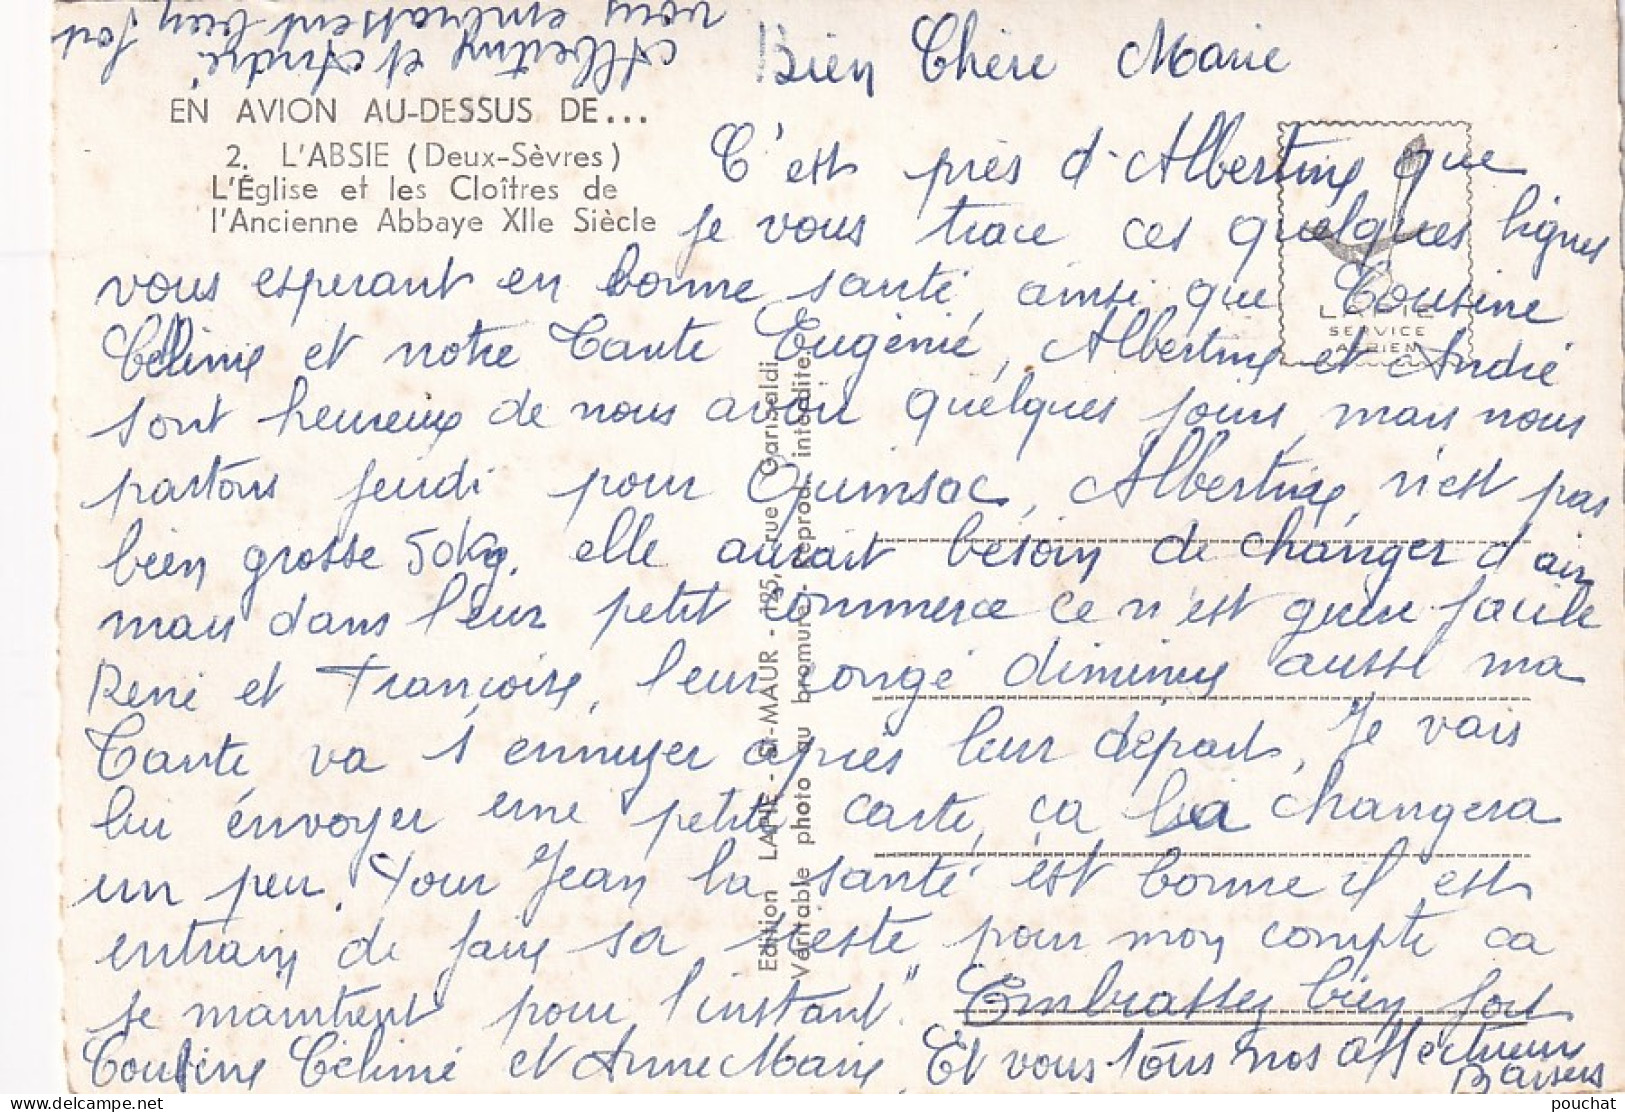 Albertine et André
vous embrassent bien fort
Bien Chère Marie
EN AVION AU-DESSUS DE...
2. L'ABSIE (Deux-Sèvres)
L'Église et les Cloîtres de
l'Ancienne Abbaye XIIe Siècle
C'est près d'Albertine que
je vous trace ces quelques lignes
vous esperant en bonne santé, ainsi que Cousine
Céline et notre Tante Eugénie, Albertine et André
sont heureux de nous avoir quelques jours, mais nous
partons jeudi pour Quinsac, Albertine, n'est pas
bien grosse 50kg. elle aurait besoin de changer d'air
mais dans leur petit commerce ce n'est guère facile
René et Françoise, leur congé diminue aussi ma
Tante va s'ennuyer après leur départ, Je vais
lui envoyer une petite carte, ça la changera
un peu. Pour Jean la santé est bonne il est
entrain de faire sa sieste, pour mon compte ca
se maintient pour l'instant" Embrassez bien fort
Cousine Céline et Anne Marie, Et vous tous nos affectueux
Baisers
LAPIE
SERVICE
AERIEN
Edition LAPIE - St-MAUR - 125, rue Garibaldi
Véritable photo au bromure - Reprod. interdite.
pouchat